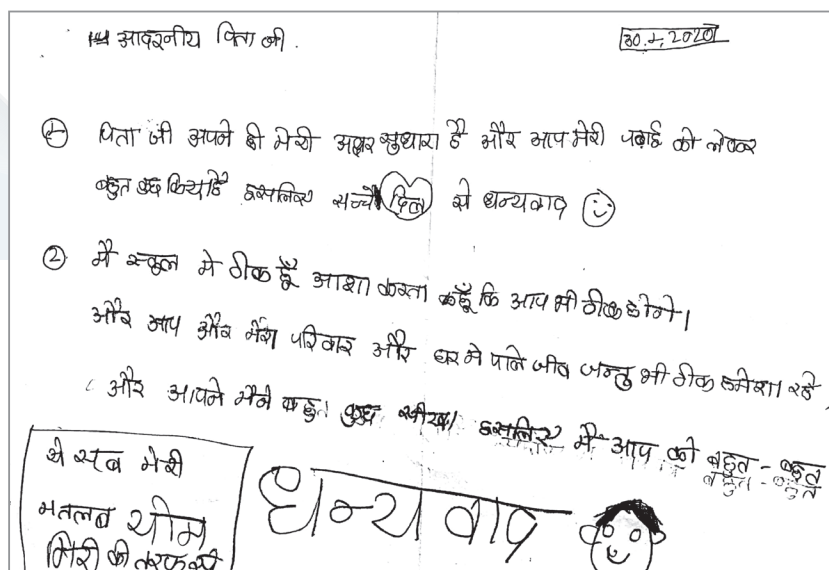 आदरनीय पिता जी.
30.4.2020
① पिता जी अपने ही मेरी अक्षर सुधारा है और आप मेरी पढाई को लेकर
बहुत कुछ किया है इसलिए सच्चे दिल से धन्यवाद
② मै स्कूल मे ठीक हूँ आशा करता कहूँ कि आप भी ठीक होगे।
और आप और मेरा परिवार और घर मे पाले जीव जन्तु भी ठीक हमेशा रहे,
और आपने मैने बहुत कुछ सीखा इसलिए मै आप को बहुत - बहुत
बहुत - बहुत
धन्य वाद
ये सब मेरी
मतलब योम
गिरी की तरफ से